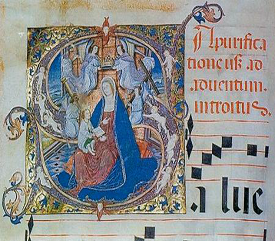 In purifica
tione usq̃ ad
aduentum.
introitus.
alue